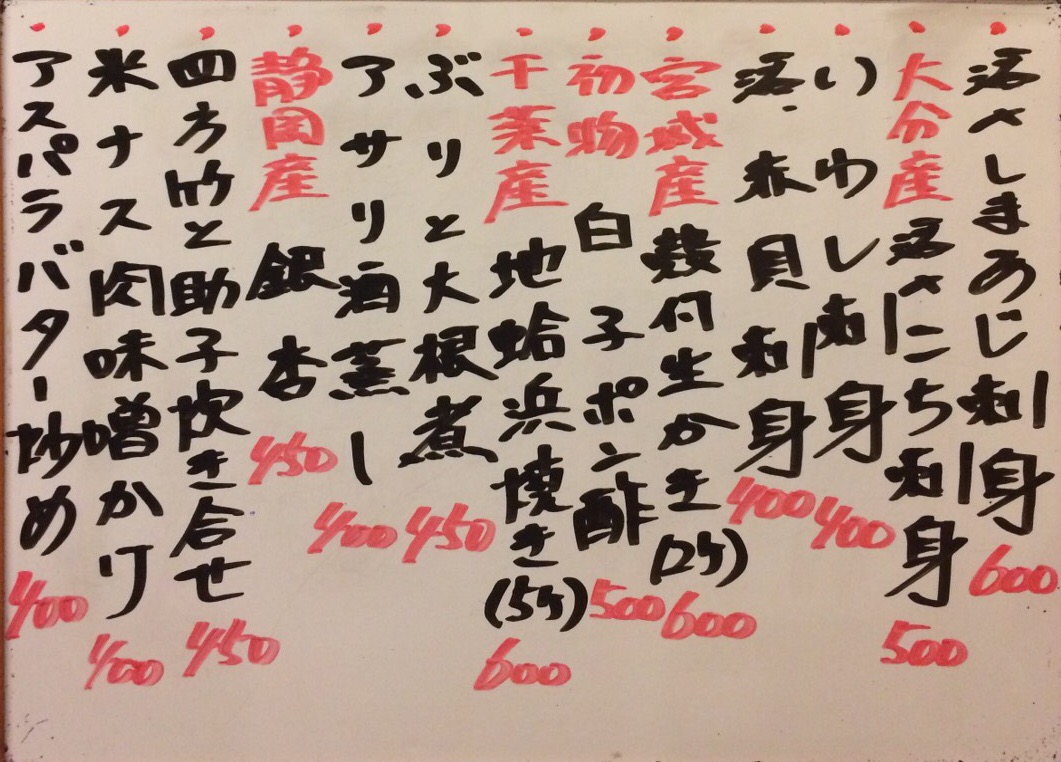 活〆しまあじ刺身 600
大分産 活〆こち刺身 500
いわし刺身 400
活.赤貝刺身 400
宮城産 殻付生かき(2ケ) 600
初物 白子ポン酢 500
千葉産 地蛤浜焼き(5ケ) 600
ぶりと大根煮 450
アサリ酒蒸し 400
静岡産 銀杏 450
四方竹と助子炊き合せ 450
米ナス肉味噌かけ 400
アスパラバター炒め 400